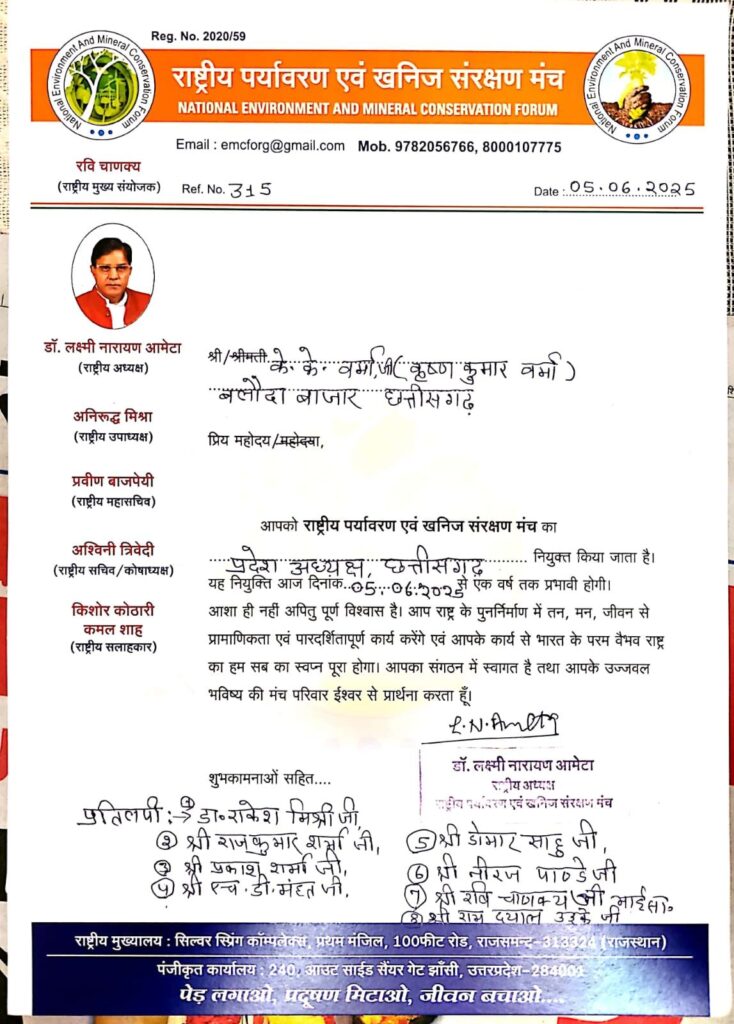 Reg. No. 2020/59
National Environment And Mineral Conservation Forum
राष्ट्रीय पर्यावरण एवं खनिज संरक्षण मंच
NATIONAL ENVIRONMENT AND MINERAL CONSERVATION FORUM
National Environment And Mineral Conservation Forum
Email : emcforg@gmail.com Mob. 9782056766, 8000107775
रवि चाणक्य
(राष्ट्रीय मुख्य संयोजक)
Ref. No. 315
Date : 05.06.2025
डॉ. लक्ष्मी नारायण आमेटा
(राष्ट्रीय अध्यक्ष)
अनिरुद्ध मिश्रा
(राष्ट्रीय उपाध्यक्ष)
प्रवीण बाजपेयी
(राष्ट्रीय महासचिव)
अश्विनी त्रिवेदी
(राष्ट्रीय सचिव/कोषाध्यक्ष)
किशोर कोठारी
कमल शाह
(राष्ट्रीय सलाहकार)
श्री/श्रीमती के. के. वर्मा जी (कृष्ण कुमार वर्मा)
बलौदा बाजार छत्तीसगढ़
प्रिय महोदय/महोदया,
आपको राष्ट्रीय पर्यावरण एवं खनिज संरक्षण मंच का
प्रदेश अध्यक्ष, छत्तीसगढ़ नियुक्त किया जाता है।
यह नियुक्ति आज दिनांक 05.06.2025 से एक वर्ष तक प्रभावी होगी।
आशा ही नहीं अपितु पूर्ण विश्वास है। आप राष्ट्र के पुनर्निर्माण में तन, मन, जीवन से
प्रामाणिकता एवं पारदर्शितापूर्ण कार्य करेंगे एवं आपके कार्य से भारत के परम वैभव राष्ट्र
का हम सब का स्वप्न पूरा होगा। आपका संगठन में स्वागत है तथा आपके उज्जवल
भविष्य की मंच परिवार ईश्वर से प्रार्थना करता हूँ।
डॉ. लक्ष्मी नारायण आमेटा
राष्ट्रीय अध्यक्ष
राष्ट्रीय पर्यावरण एवं खनिज संरक्षण मंच
शुभकामनाओं सहित....
प्रतिलिपी :→ ① डा. राकेश मिश्रा जी,
② श्री राजकुमार शर्मा जी,
③ श्री प्रकाश शर्मा जी,
④ श्री एच. डी. महंत जी.
⑤ श्री डोमार साहु जी,
⑥ श्री नीरज पाण्डे जी
⑦ श्री रवि चाणक्य जी भाईसा.
⑧ श्री राम दयाल उइके जी
राष्ट्रीय मुख्यालय : सिल्वर स्प्रिंग कॉम्पलेक्स, प्रथम मंजिल, 100फीट रोड, राजसमन्द-313324 (राजस्थान)
पंजीकृत कार्यालय : 240, आउट साईड सैंयर गेट झाँसी, उत्तरप्रदेश-284001
पेड़ लगाओ, प्रदूषण मिटाओ, जीवन बचाओ....